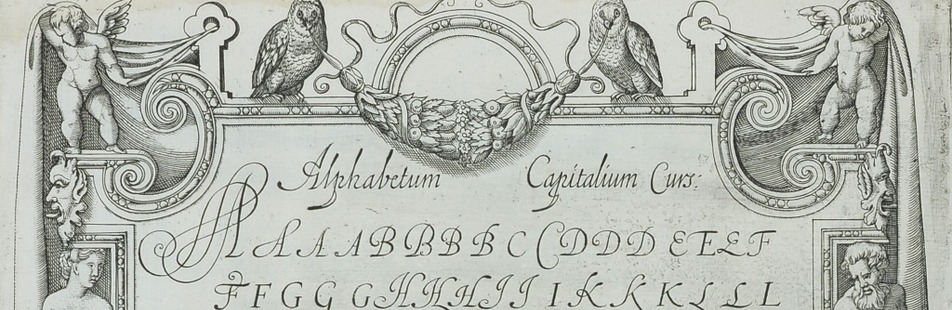 Alphabetum Capitalium Curs:
A A A A B B B B C C D D D E E E F
F F G G G H H H I I I K K K K L L L